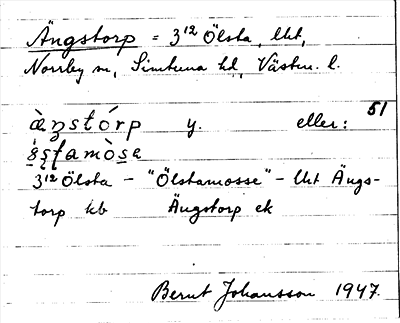 Ängstorp = 3¹² Ölsta, Ukt,
Norrby sn, Simtuna hd, Västm. l.
51
æ̀ŋstórp y. eller:
ö̀stamòsa
3¹² Ölsta – "Ölstamosse" – Ukt Ängs-
torp kb Ängstorp ek
Bernt Johansson 1947.